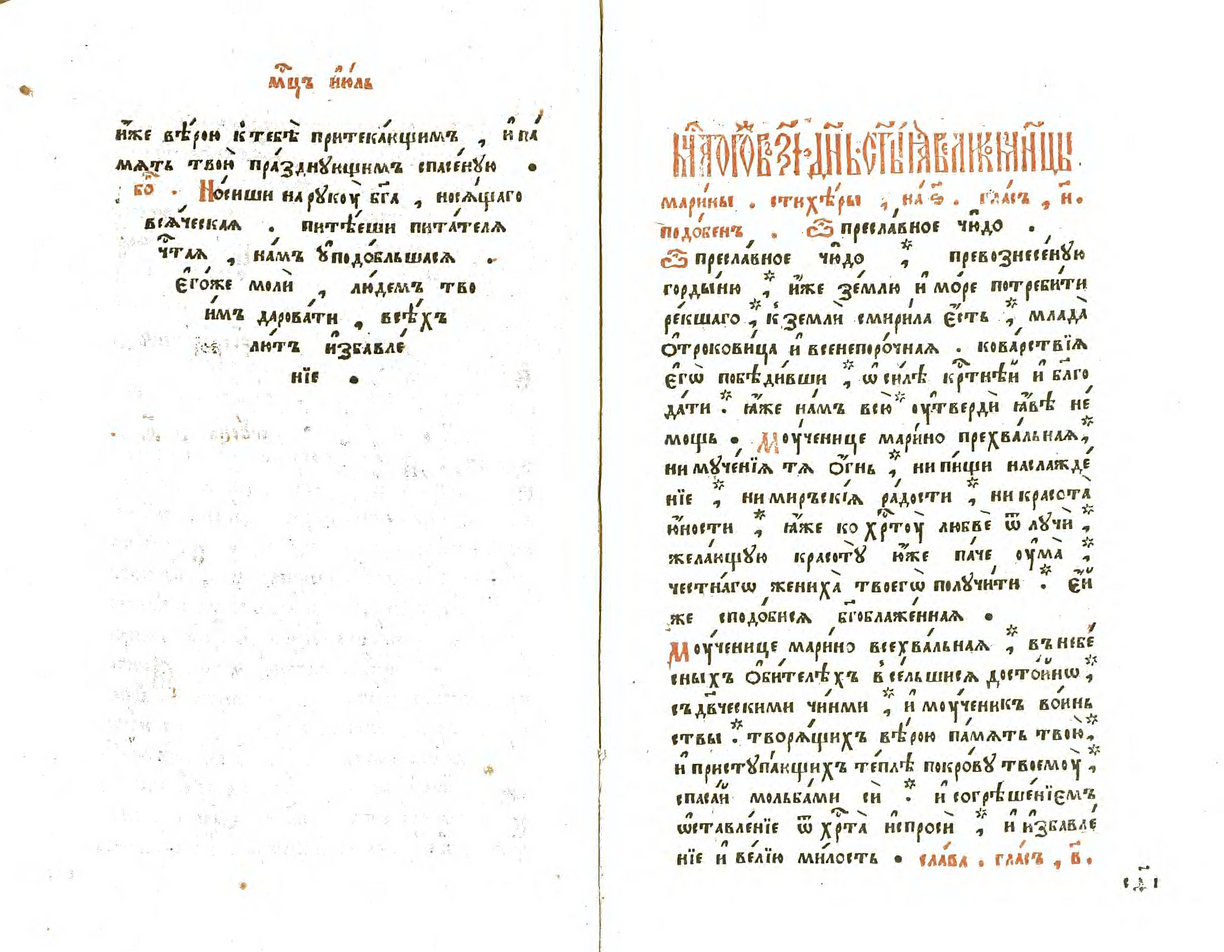 мⷭ҇цъ і҆ю́ль
и҆́же вѣ́рою к̾ тебѣ̀ притека́ющимъ , и҆ па́
мѧть твою̀ пра́зднующимъ спасе́ную .
бо҃ . Но́сиши на рꙋкоу̀ бг҃а , носѧ́щаго
всѧ́ческаѧ . пита́еши пита́телѧ
чⷭ҇таѧ , на́мъ ᲂу҆подо́бльшасѧ .
Е҆го́же молѝ , лю́демъ тво
и҆́мъ дарова́ти , всѣ́хъ
лю́тъ и҆збавле́
нїе .
мⷭ҇ца того́ в҃ з҃і , дн҃ь . ст҃ы́ѧ великомч҃нцы
мари́ны . стихѣ́ры , на ѕ҃ . гла́съ , и҃ .
подо́бенъ . Ѽ пресла́вное чю́до .
Ѽ пресла́вное чю́до , превознесе́ную
горды́ню , и҆́же зе́млю и҆ мо́ре потреби́ти
ре́кшаго , к̾ землѝ смири́ла є҆́сть , млада̀
Ѻ҆трокови́ца и҆ всенепоро́чнаѧ . кова́рствїѧ
є҆гѡ̀ побѣди́вши , ѡ҆ си́лѣ крⷭ҇тнѣй и҆ бл҃го
да́ти . ꙗ҆́же на́мъ всю̀ ᲂу҆твердѝ ꙗ҆́вѣ не́
мощь . Моу́ченице мари́но прехва́льнаѧ ,
ни муче́нїѧ тѧ Ѻ҆́гнь , ни пи́щи наслажде́
нїе , ни ми́рьскїѧ ра́дости , ни красота̀
ю҆́ности , ꙗ҆́же ко хрⷭ҇тоу̀ любвѐ ѿлучѝ ,
жела́ющую красоту̀ ю҆́же па́че ᲂу҆ма̀ ,
че́стна́гѡ жениха̀ твоегѡ̀ получи́ти . є҆́й
же сподо́бисѧ бг҃облаже́ннаѧ .
Моу́ченице мари́но всехва́льнаѧ , въ небе́
сныхъ Ѻ҆би́телѣхъ все́льшисѧ досто́йнѡ ,
съ дв҃ческими чи́ними , и҆ моу́ченикъ во́инь
ствы . творѧ́щихъ вѣ́рою па́мѧть твою̀ ,
и҆ приступа́ющихъ те́плѣ покро́ву твоемоу̀ ,
спаса́й мольба́ми сѝ . и҆ согрѣше́нїемъ
ѡ҆ставле́нїе ѿ хрⷭ҇та̀ и҆спросѝ , и҆ и҆збавле́
нїе и҆ ве́лїю ми́лость . сла́ва . гла́съ , в҃ .
сд҃і